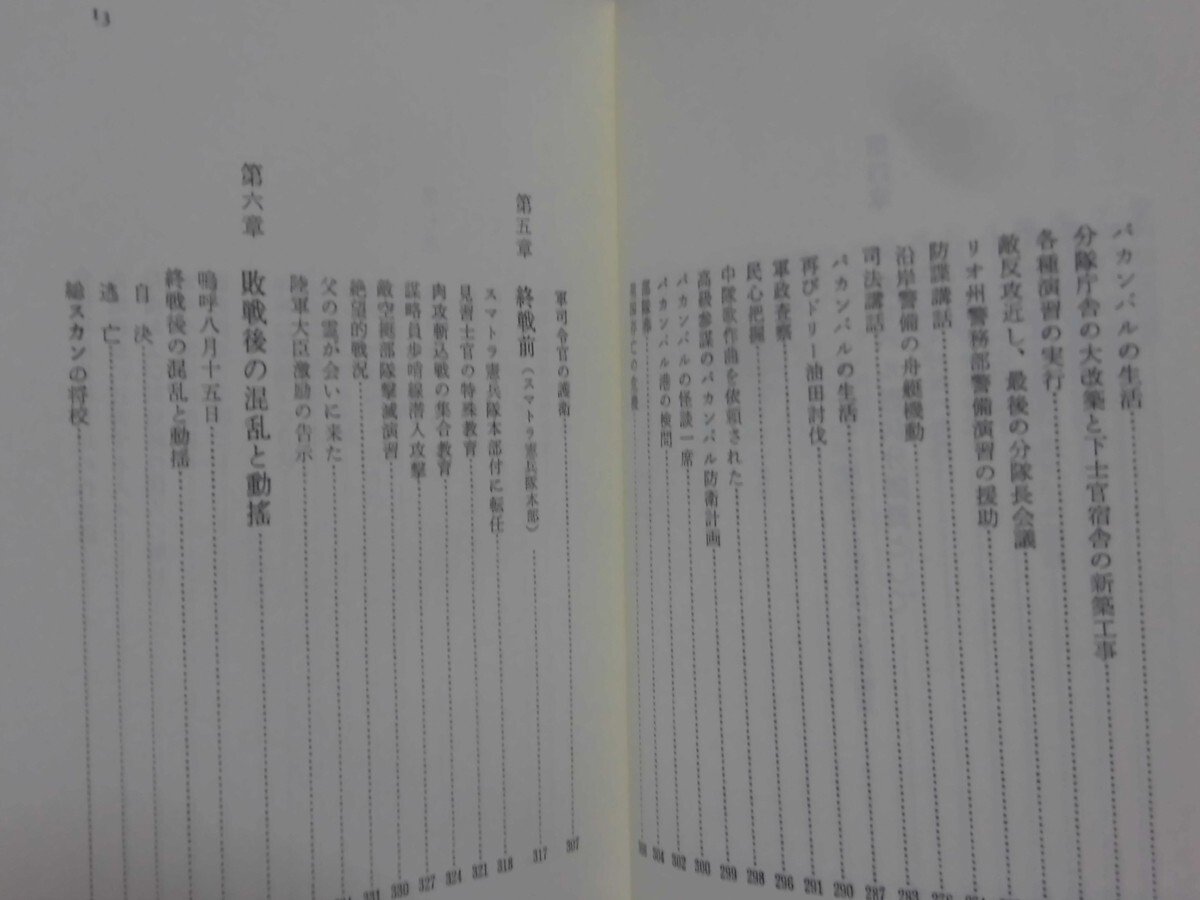 パカンバルの生活
分隊庁舎の大改築と下士官宿舎の新築工事
各種演習の実行
敵反攻近し、最後の分隊長会議
リオ州警務部警備演習の援助
防諜講話
沿岸警備の舟艇機動 283
司法講話 287
パカンバルの生活 290
再びドリー油田討伐 291
軍政査察 296
民心把握 298
中隊歌作曲を依頼された 299
高級参謀のパカンバル防衛計画 300
パカンバルの怪談一席 302
パカンバル港の検問 304
軍司令官の護衛 307
第五章 終戦前(スマトラ憲兵隊本部) 317
スマトラ憲兵隊本部付に転任 318
見習士官の特殊教育 321
肉攻斬込戦の集合教育 324
謀略員歩哨線潜入攻撃 327
敵空挺部隊撃滅演習 330
絶望的戦況 331
父の霊が会いに来た
陸軍大臣激励の告示
第六章 敗戦後の混乱と動揺
嗚呼八月十五日
終戦後の混乱と動揺
自決
逃亡
スカンの将校
13